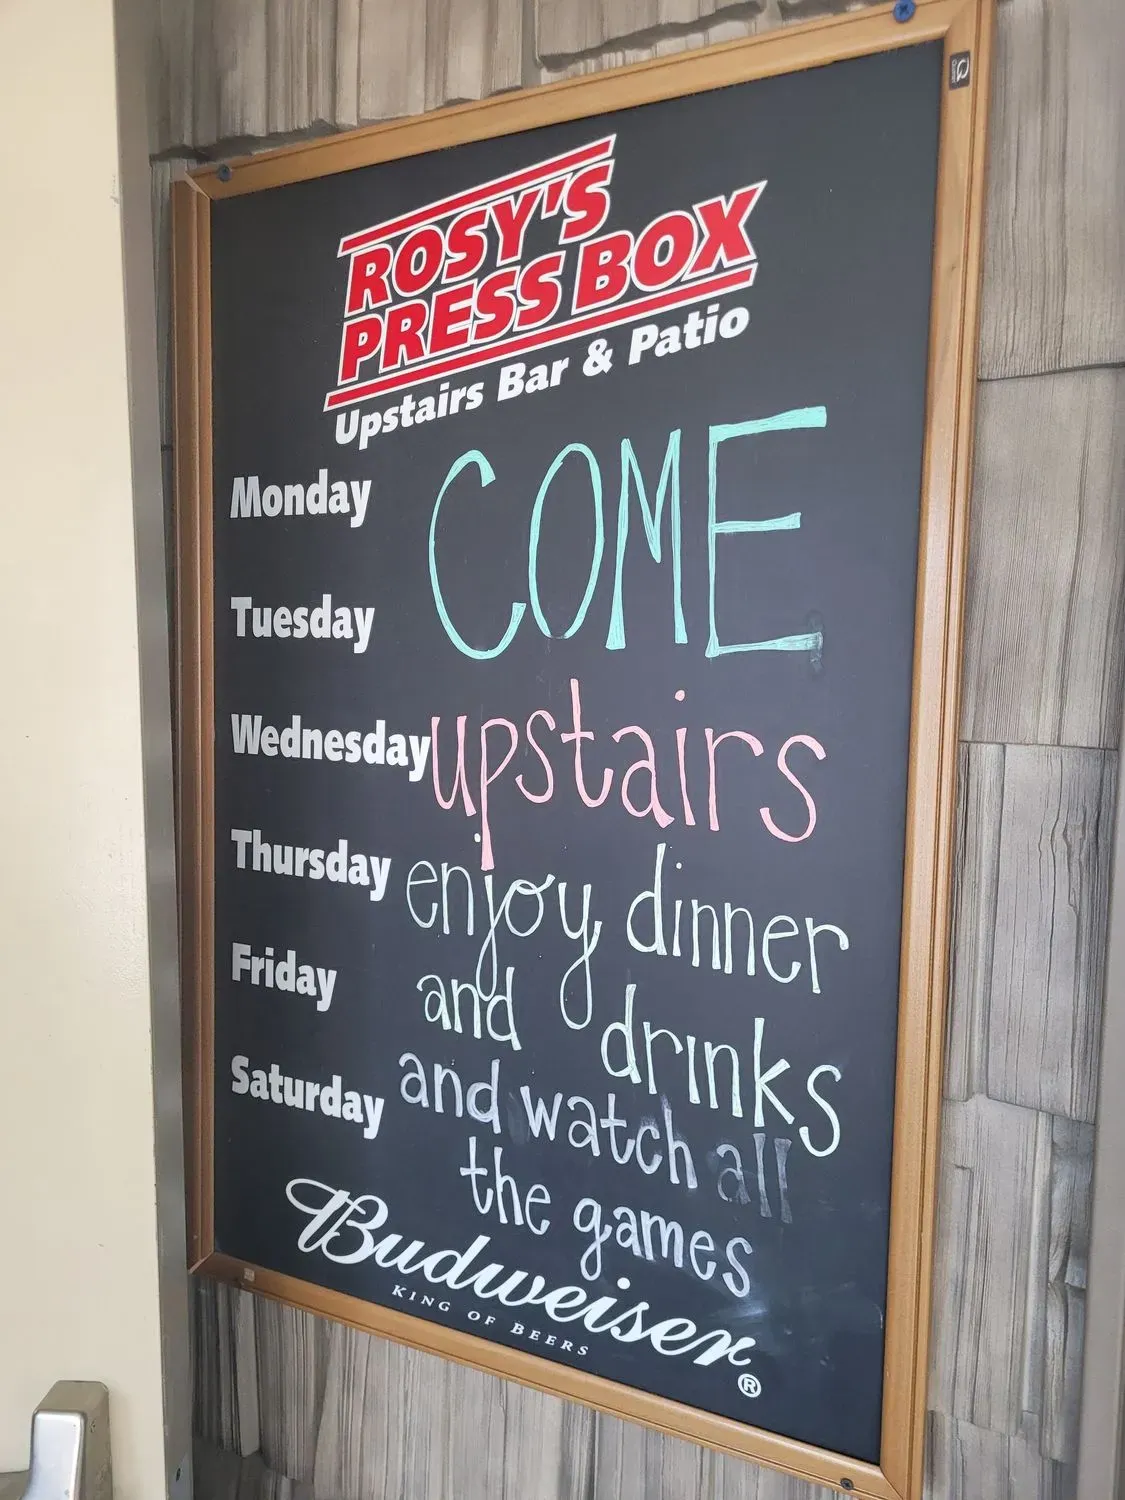 ROSY'S
PRESS BOX
Upstairs Bar & Patio
Monday
COME
Tuesday
Wednesday
upstairs
Thursday
enjoy dinner
Friday
and drinks
Saturday
and watch all
the games
Budweiser
KING OF BEERS
®